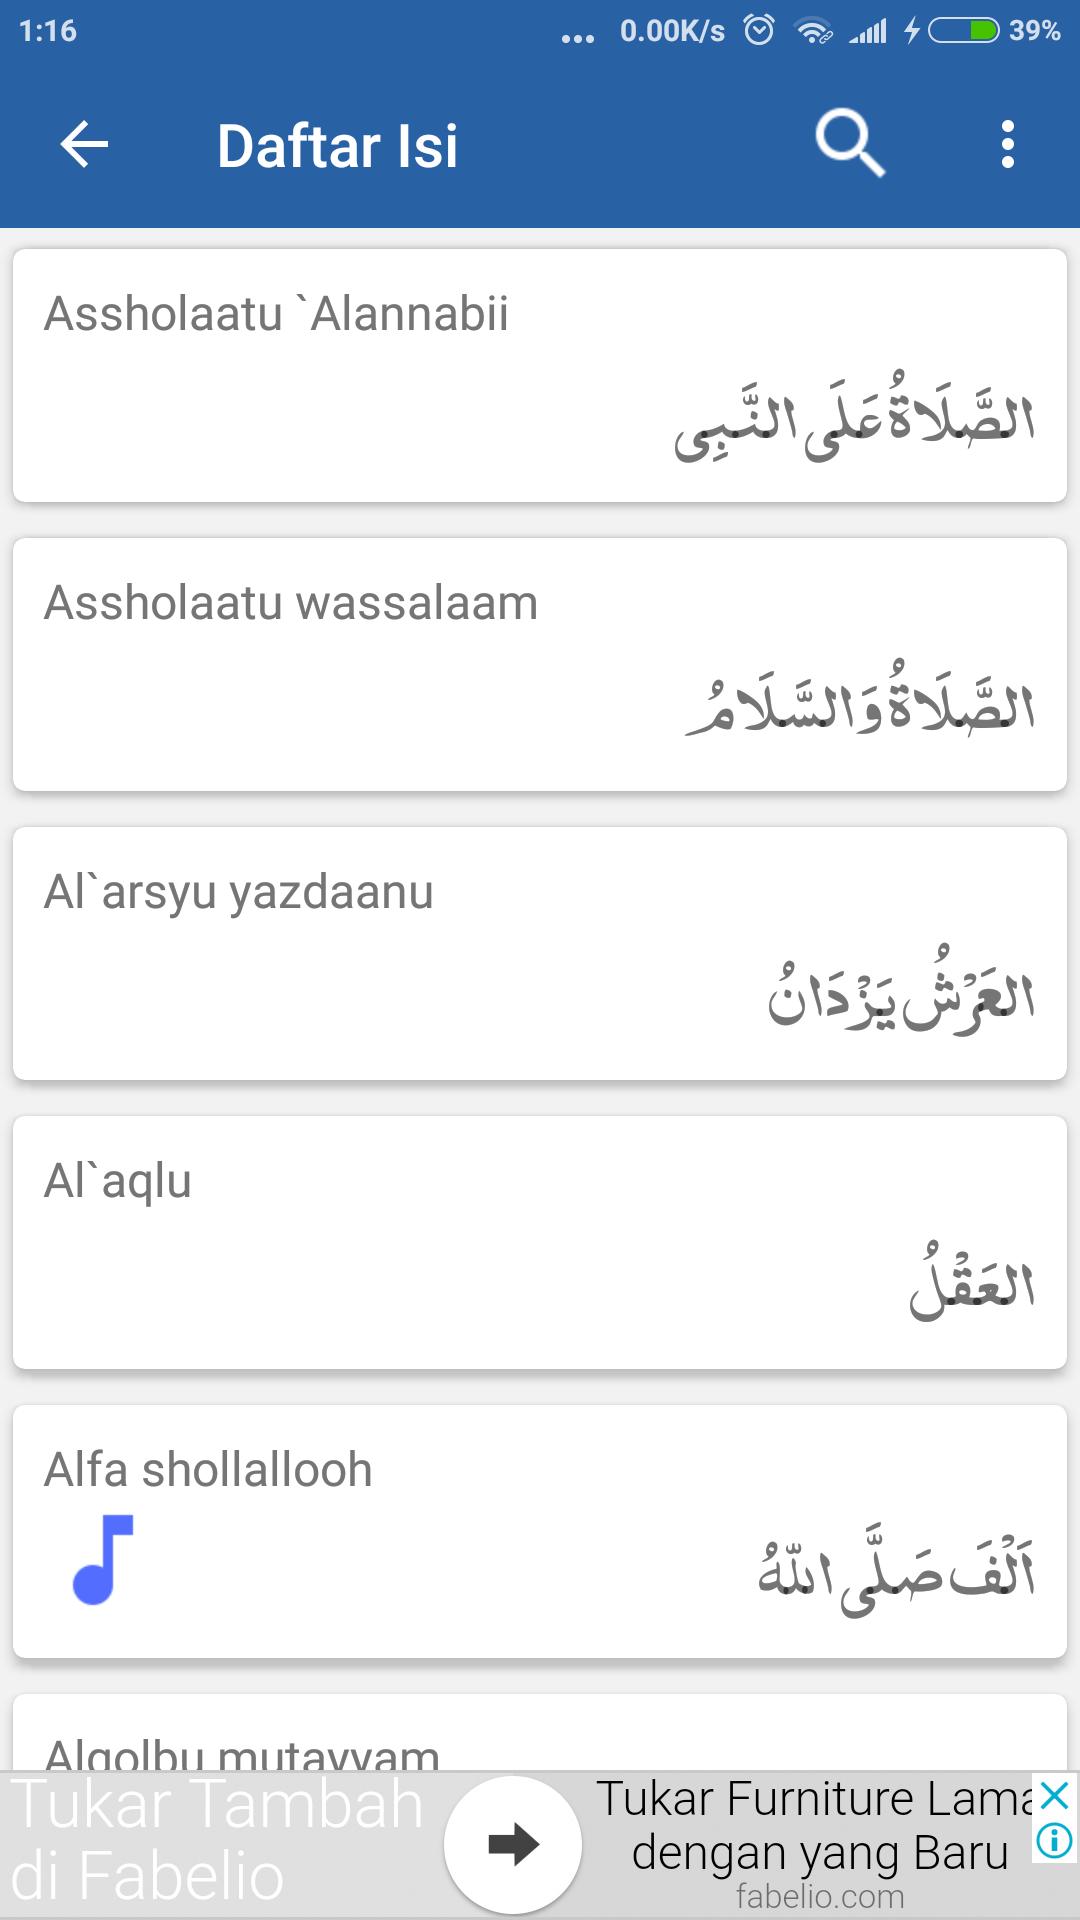 1:16
... 0.00K/s 39%
Daftar Isi
Assholaatu `Alannabii
الصَّلَاةُ عَلَى النَّبِى
Assholaatu wassalaam
الصَّلَاةُ وَالسَّلَامُ
Al`arsyu yazdaanu
العَرْشُ يَزْدَانُ
Al`aqlu
العَقْلُ
Alfa shollallooh
اَلْفَ صَلَّى اللّٰهُ
Alqolbu mutayyam
Tukar Tambah
di Fabelio
Tukar Furniture Lama
dengan yang Baru
fabelio.com